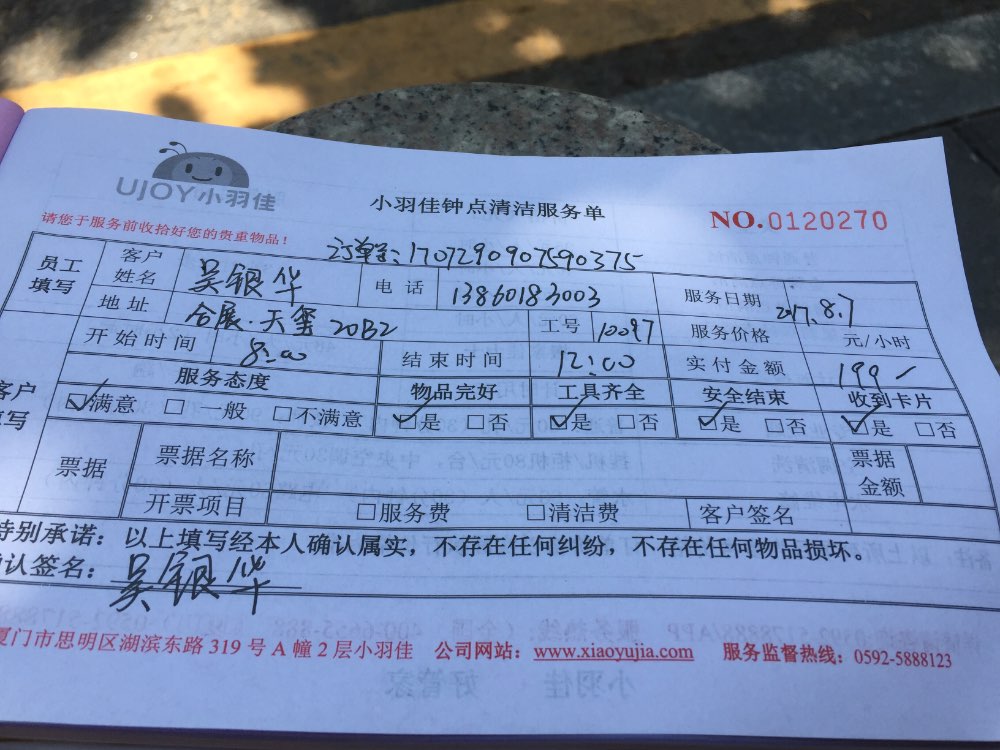 UJOY小羽佳
小羽佳钟点清洁服务单
NO.0120270
请您于服务前收拾好您的贵重物品！
订单号：1707290907590375
员工填写 客户姓名 吴银华 电话 13860183003 服务日期 2017.8.7
地址 合展·天玺20B2 工号 10097 服务价格 元/小时
开始时间 8:00 结束时间 12:00 实付金额 199-
客户填写 服务态度 物品完好 工具齐全 安全结束 收到卡片
☑满意 □一般 □不满意 ☑是 □否 ☑是 □否 ☑是 □否 ☑是 □否
票据 票据名称 票据金额
开票项目 □服务费 □清洁费 客户签名
特别承诺：以上填写经本人确认属实，不存在任何纠纷，不存在任何物品损坏。
确认签名：吴银华
厦门市思明区湖滨东路 319 号 A 幢 2 层小羽佳 公司网站：www.xiaoyujia.com 服务监督热线：0592-5888123